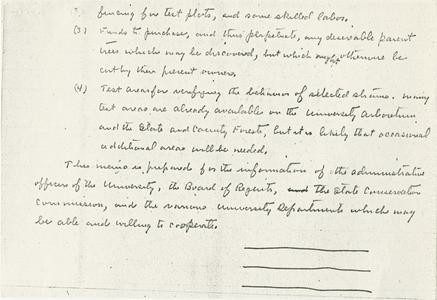 fencing for test plots, and some skilled labor.
(3) Funds to purchase, and thus perpetuate, any desirable parent
trees which may be discovered, but which might otherwise be
cut by their present owners.
(4) Test areas for verifying the behavior of selected strains. Many
test areas are already available on the University Arboretum
and the State and County Forests, but it is likely that occasional
additional areas will be needed.
This memo is prepared for the information of the administrative
officers of the University, the Board of Regents, and the State Conservation
Commission, and the various University Departments which may
be able and willing to cooperate.